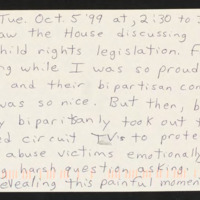 Tue. Oct. 5 '99 at, 2:30 to
aw the House discussing
hild rights legislation. F
ng while I was so proud
and their bipartisan con
was so nice. But then, b
y bipartisanly took out t
ed circuit TVs to prote
abuse victims emotionally
g harsh question asking
evealing this painful momen